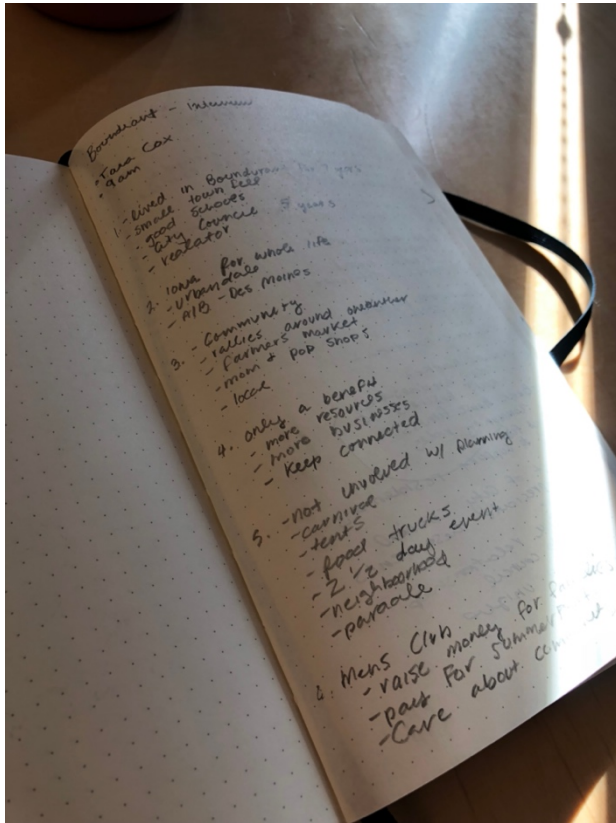 Boundrant - Interview
• Tara Cox
• 9am
1. - Lived in Boundurant for 7 years
- small town feel
- good schools
- City Council 5 years
- realator
2. Iowa for whole life
- Urbandale
- AIB - Des Moines
3. - Community
- rallies around oneanother
- farmers market
- mom & pop shops
- local
4. only a benefit
- more resources
- more businesses
- keep connected
5. - not involved w/ planning
- carnival
- tents
- food trucks
- 2 1/2 day event
- neighborhood
- parade
6. Mens Club
- raise money for families
- pay for summer
- Care about